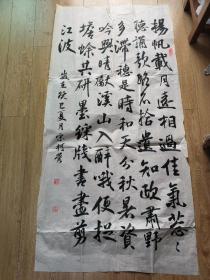 揚帆載月遠相過佳氣葱〻
聽誦歌路不拾遺知政肅野
多滯穗是時和天分秋暑資
吟興晴獻溪山入醉哦便捉
蟾蜍共研墨綵牋書盡剪
江波
歲在癸巳夏月